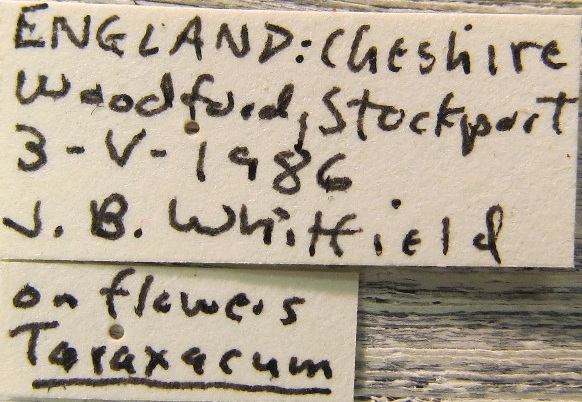 ENGLAND: Cheshire
Woodford, Stockport
3-V-1986
J. B. Whitfield
on flowers
Taraxacum